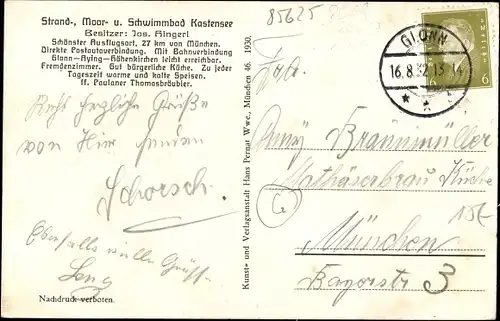 Strand-, Moor- u. Schwimmbad Kastensee
Besitzer: Jos. Ringerl
Schönster Ausflugsort, 27 km von München.
Direkte Postautoverbindung. Mit Bahnverbindung
Glonn–Aying–Höhenkirchen leicht erreichbar.
Fremdenzimmer. Gut bürgerliche Küche. Zu jeder
Tageszeit warme und kalte Speisen.
ff. Paulaner Thomasbräubier.
Recht herzliche Grüße
von hier senden
Schorsch.
Ebenfalls viele Grüße
Leny
Nachdruck verboten.
Kunst- und Verlagsanstalt Hans Pernat Wwe., München 46. 1930.
85625
GLONN
16.8.32.13-14
6 6
Frl.
Anny Braunmüller
Mathäserbräu Küche
G
15/-
München
Bayerstr 3